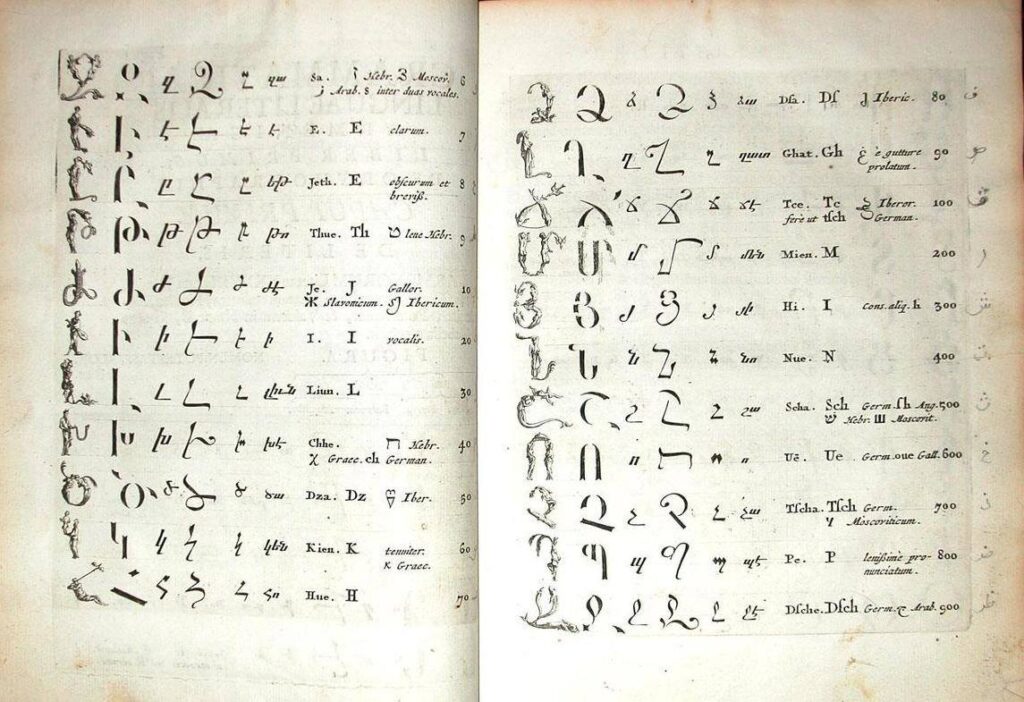 Զ Զ զ Զ զ զա Sa. ז Hebr. З Moscov. 6
Arab. s inter duas vocales.
Է Է է Է է է E. E clarum. 7
Ը Ը ը Ը ը ըթ Jeth. E obscurum et 8
breviſſ.
Թ Թ թ Թ թ թո Thue. Th ט lene Hebr. 9
Ժ Ժ ժ Ժ ժ ժէ Je. J Gallor. 10
Ж Slavonicum. Ibericum.
Ի Ի ի Ի ի ի I. I vocalis. 20
Լ Լ լ Լ լ լիւն Liun. L 30
Խ Խ խ Խ խ խէ Chhe. ח Hebr. 40
χ Graec. ch German.
Ծ Ծ ծ Ծ ծ ծա Dza. Dz Iber. 50
Կ Կ կ Կ կ կեն Kien. K tenuiter. 60
κ Graec.
Հ Հ հ Հ հ հո Hue. H 70
Ձ Ձ ձ Ձ ձ ձա Dſa. Dſ Iberic. 80
Ղ Ղ ղ Ղ ղ ղատ Ghat. Gh غ è gutture 90
prolatum.
Ճ Ճ ճ Ճ ճ ճէ Tce. Tc Iberor. 100
fere ut tſch German.
Մ Մ մ Մ մ մեն Mien. M 200
Յ Յ յ Յ յ յի Hi. I Cons. aliq. h 300
Ն Ն ն Ն ն նու Nue. N 400
Շ Շ շ Շ շ շա Scha. Sch Germ. ſh Ang. 500
ש Hebr. ш Moscovit.
Ո Ո ո Ո ո ո Uē. Ue Germ. oue Gall. 600
Չ Չ չ Չ չ չա Tſcha. Tſch Germ. 700
ч Moscoviticum.
Պ Պ պ Պ պ պէ Pe. P leniſſime pro- 800
nunciatum.
Ջ Ջ ջ Ջ ջ ջէ Dſche. Dſch Germ. ج Arab. 900